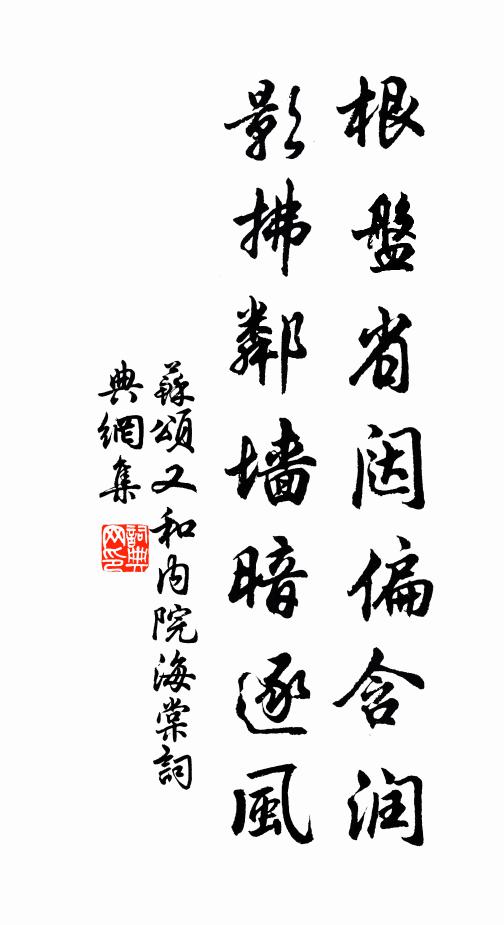 根盤省闼偏含润
影拂鄰墙暗逐風
蘇頌又和内院海棠詞
典網集
詞典网印